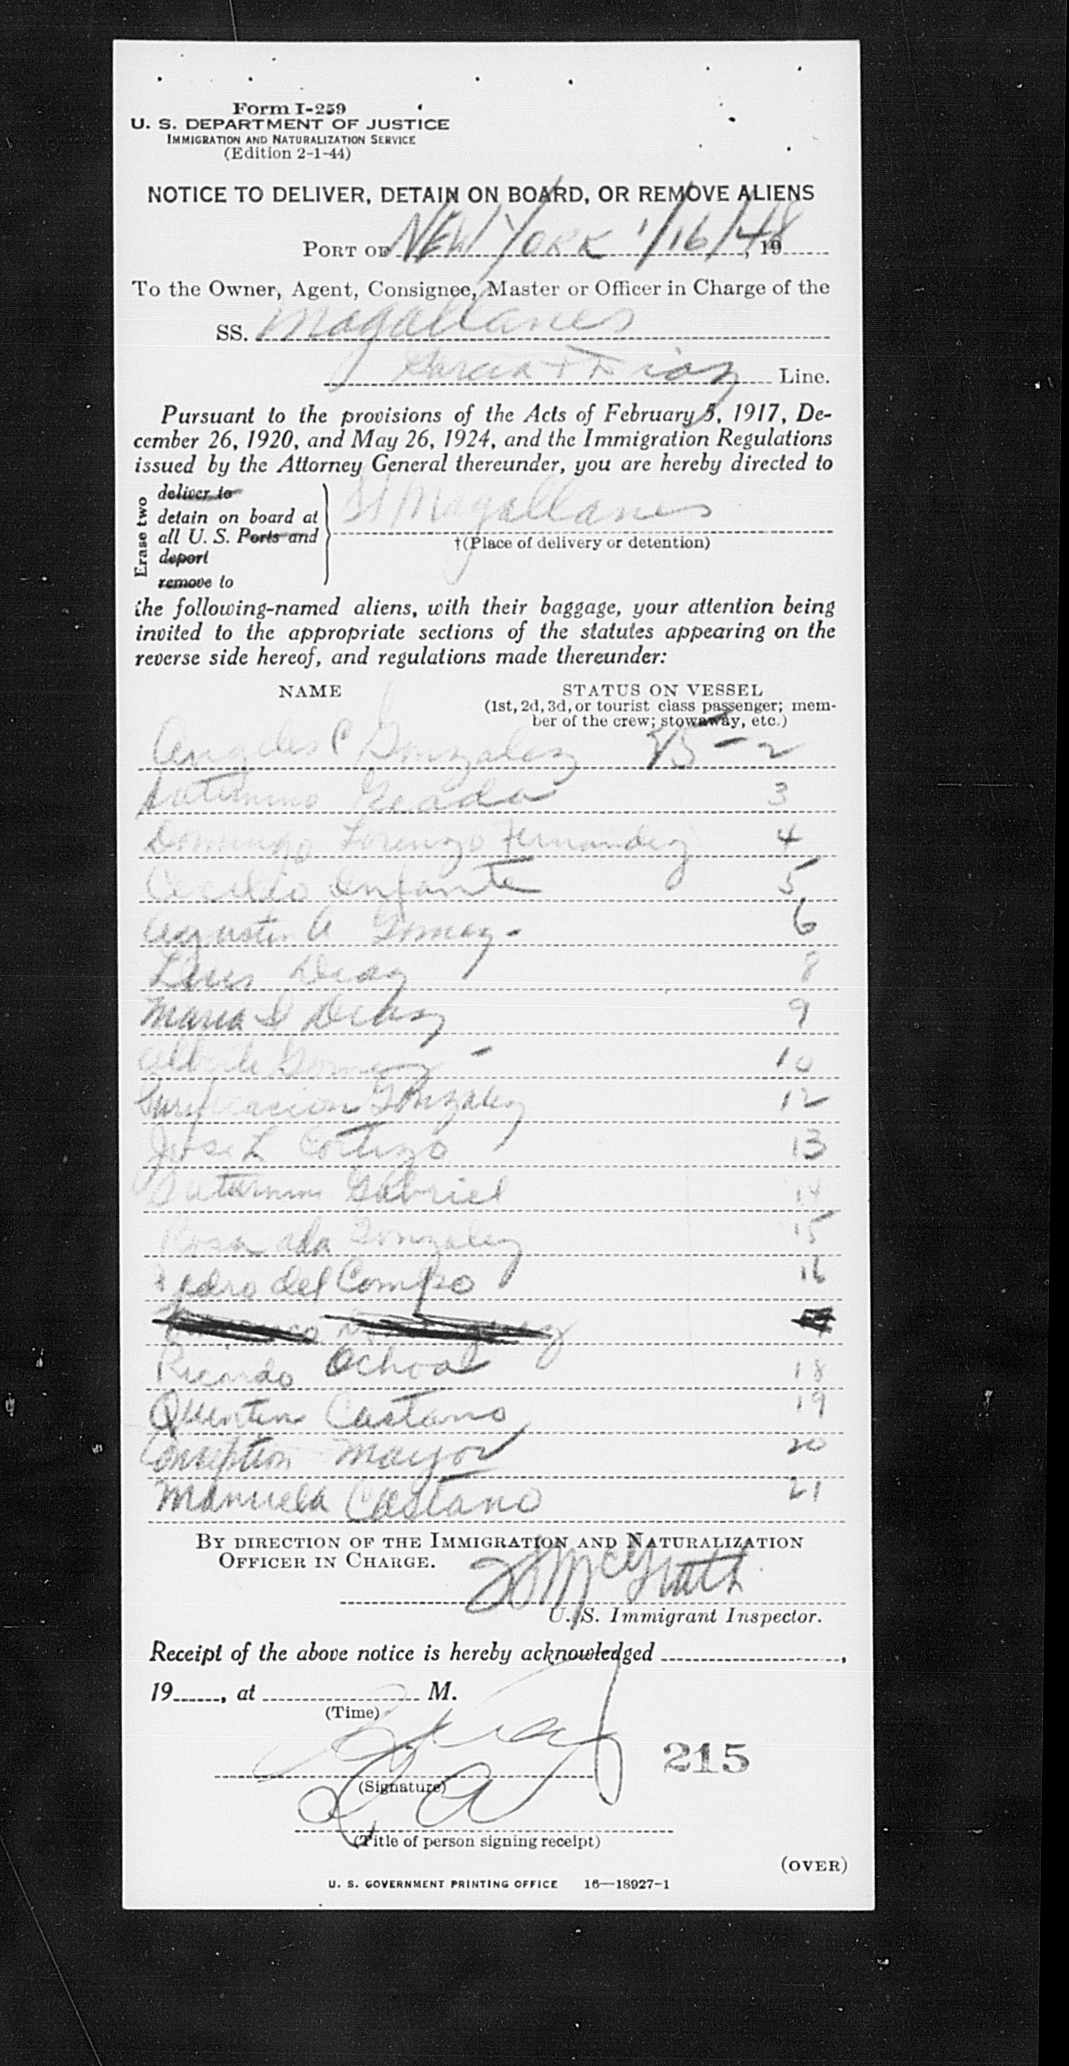 Form I-259
U. S. DEPARTMENT OF JUSTICE
IMMIGRATION AND NATURALIZATION SERVICE
(Edition 2-1-44)
NOTICE TO DELIVER, DETAIN ON BOARD, OR REMOVE ALIENS
PORT OF NEW YORK 1/16/48, 19
To the Owner, Agent, Consignee, Master or Officer in Charge of the
SS. Magallanes
Garcia + Diaz Line.
Pursuant to the provisions of the Acts of February 5, 1917, De-
cember 26, 1920, and May 26, 1924, and the Immigration Regulations
issued by the Attorney General thereunder, you are hereby directed to
Erase two
deliver to
detain on board at
all U. S. Ports and
deport
remove to
SS Magallanes
†(Place of delivery or detention)
the following-named aliens, with their baggage, your attention being
invited to the appropriate sections of the statutes appearing on the
reverse side hereof, and regulations made thereunder:
NAME STATUS ON VESSEL
(1st, 2d, 3d, or tourist class passenger; mem-
ber of the crew; stowaway, etc.)
Angeles P Gonzalez 25-2
Saturnino 3
Domingo Lorenzo Fernandez 4
Cecilio Infante 5
Agustin A Gomez - 6
Luis Diaz 8
Maria I Diaz 9
Gomez - 10
Purificacion Gonzalez 12
Jose L Cortizo 13
Saturnino Gabriel 14
Rosa Ada Gonzalez 15
Pedro del Campo 16
Ricardo Ochoa 18
Quentin Castano 19
Conception Mayor 20
Manuela Castano 21
BY DIRECTION OF THE IMMIGRATION AND NATURALIZATION
OFFICER IN CHARGE.
McGrath
U. S. Immigrant Inspector.
Receipt of the above notice is hereby acknowledged ,
19 , at M.
(Time)
215
(Signature)
(Title of person signing receipt)
(OVER)
U. S. GOVERNMENT PRINTING OFFICE 16—18927-1